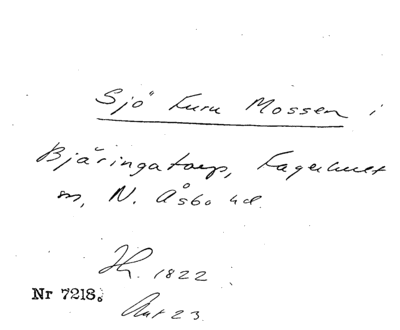 Sjö Furu Mossen i
Bjäringatorp, Fagerhult
sn, N. Åsbo hd.
Jh. 1822
Nr 7218.
Akt 23